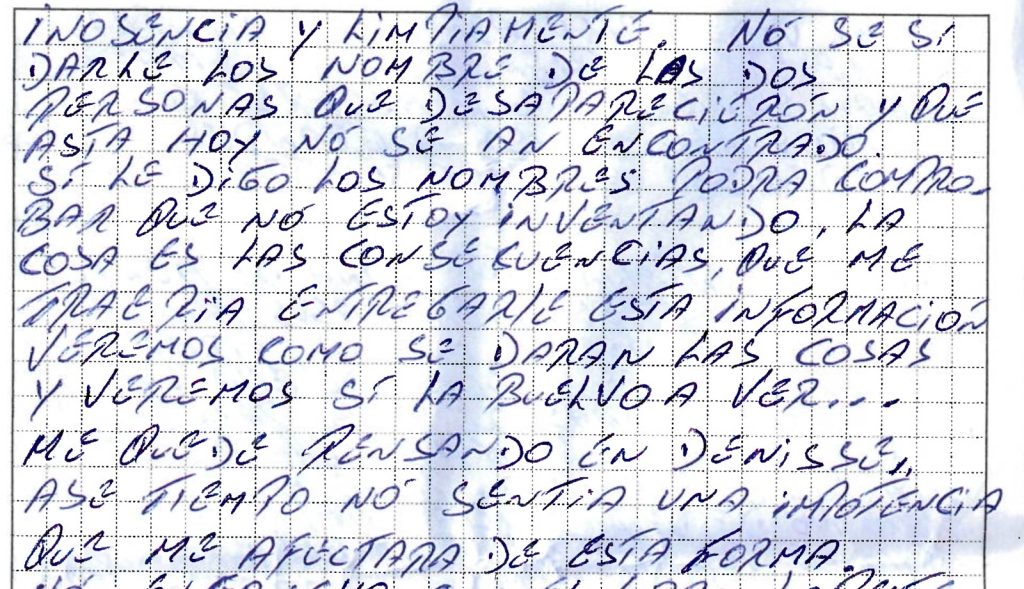 INOSENCIA Y LIMPIAMENTE. NO SE SI
DARLE LOS NOMBRE DE LAS DOS
PERSONAS QUE DESAPARECIERÓN Y QUE
ASTA HOY NO SE AN ENCONTRADO.
SI LE DIGO LOS NOMBRES PODRA COMPRO-
BAR QUE NO ESTOY INVENTANDO, LA
COSA ES LAS CONSECUENCIAS, QUE ME
TRAERIA ENTREGARLE ESTA INFORMACIÓN
VEREMOS COMO SE DARAN LAS COSAS
Y VEREMOS SI LA BUELVO A VER...
ME QUEDE PENSANDO EN DENISSE,,
ASE TIEMPO NO SENTIA UNA IMPOTENCIA
QUE ME AFECTARA DE ESTA FORMA.